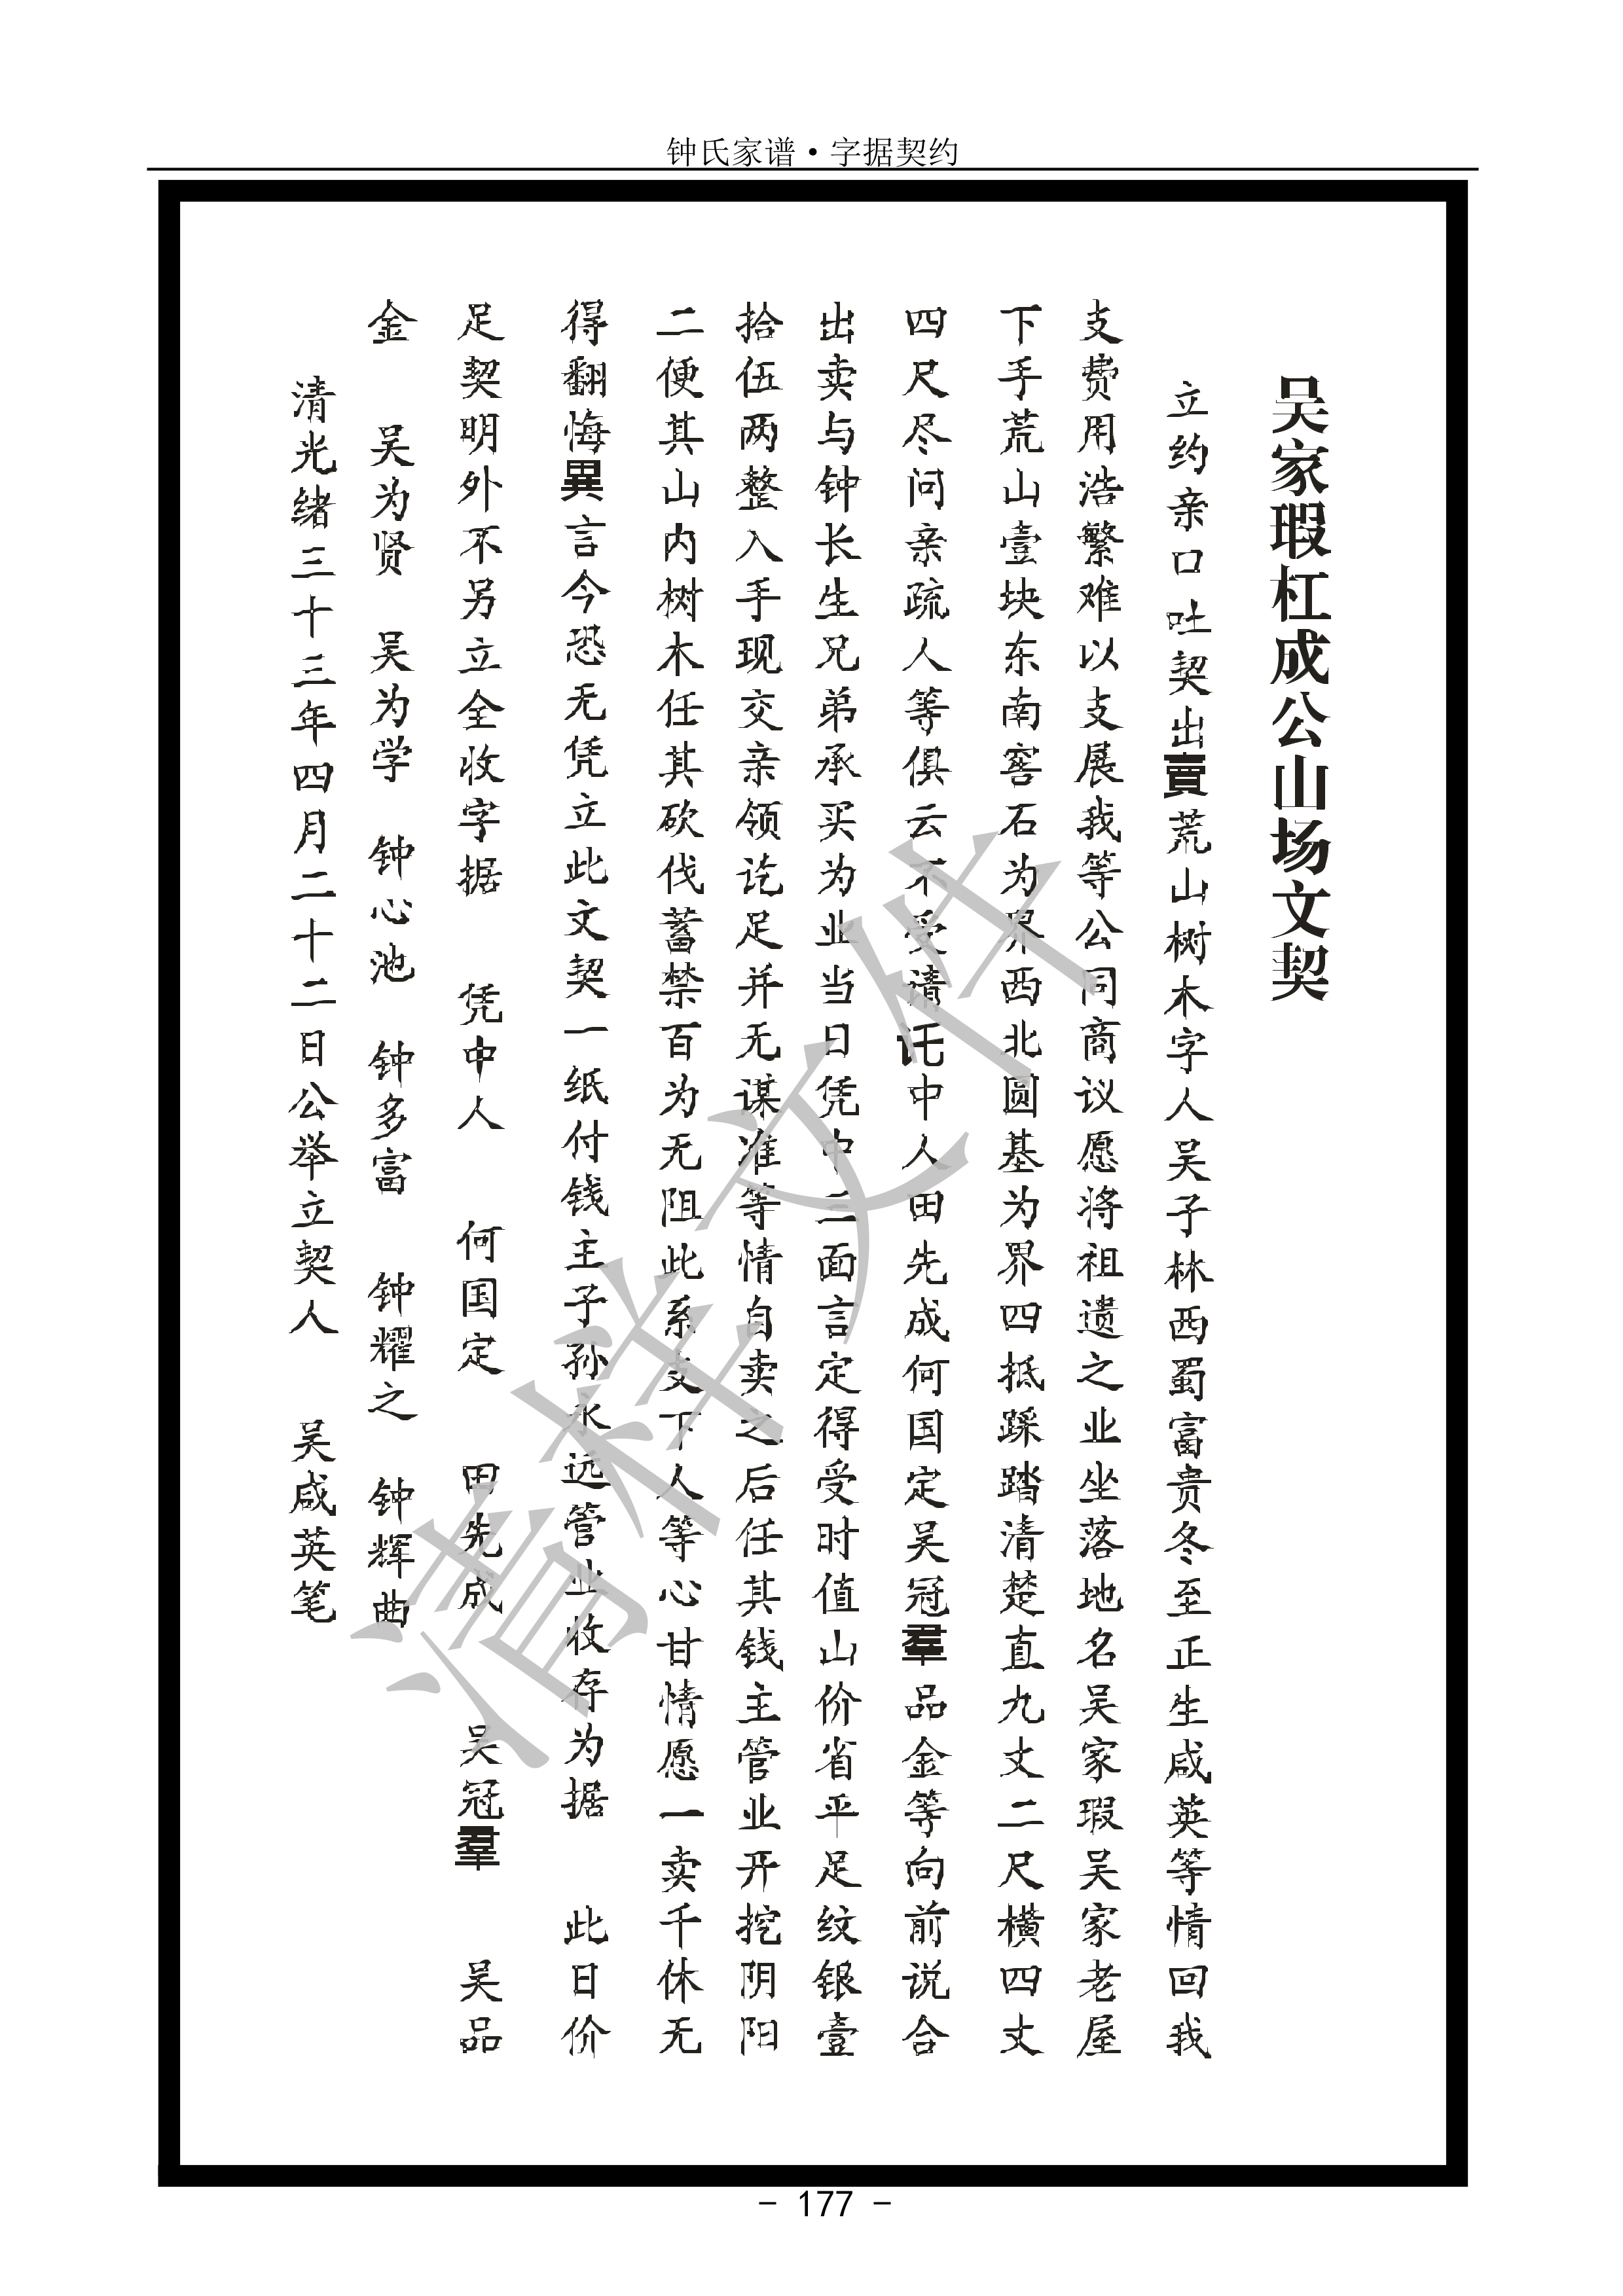 钟氏家谱·字据契约
吴家瑕杠成公山场文契
立约亲口吐契出賣荒山树木字人吴子林西蜀富贵冬至正生咸英等情回我
支费用浩繁难以支展我等公同商议愿将祖遗之业坐落地名吴家瑕吴家老屋
下手荒山壹块东南窖石为界西北圆基为界四抵踩踏清楚直九丈二尺横四丈
四尺尽问亲疏人等俱云不受请讬中人田先成何国定吴冠羣品金等向前说合
出卖与钟长生兄弟承买为业当日凭中三面言定得受时值山价省平足纹银壹
拾伍两整入手现交亲领讫足并无谋准等情自卖之后任其钱主管业开挖阴阳
二便其山内树木任其砍伐蓄禁百为无阻此系支下人等心甘情愿一卖千休无
得翻悔異言今恐无凭立此文契一纸付钱主子孙永远管业收存为据 此日价
足契明外不另立全收字据 凭中人 何国定 田先成 吴冠羣 吴品
金 吴为贤 吴为学 钟心池 钟多富 钟耀之 钟辉曲
清光绪三十三年四月二十二日公举立契人 吴咸英笔
清样文件
- 177 -